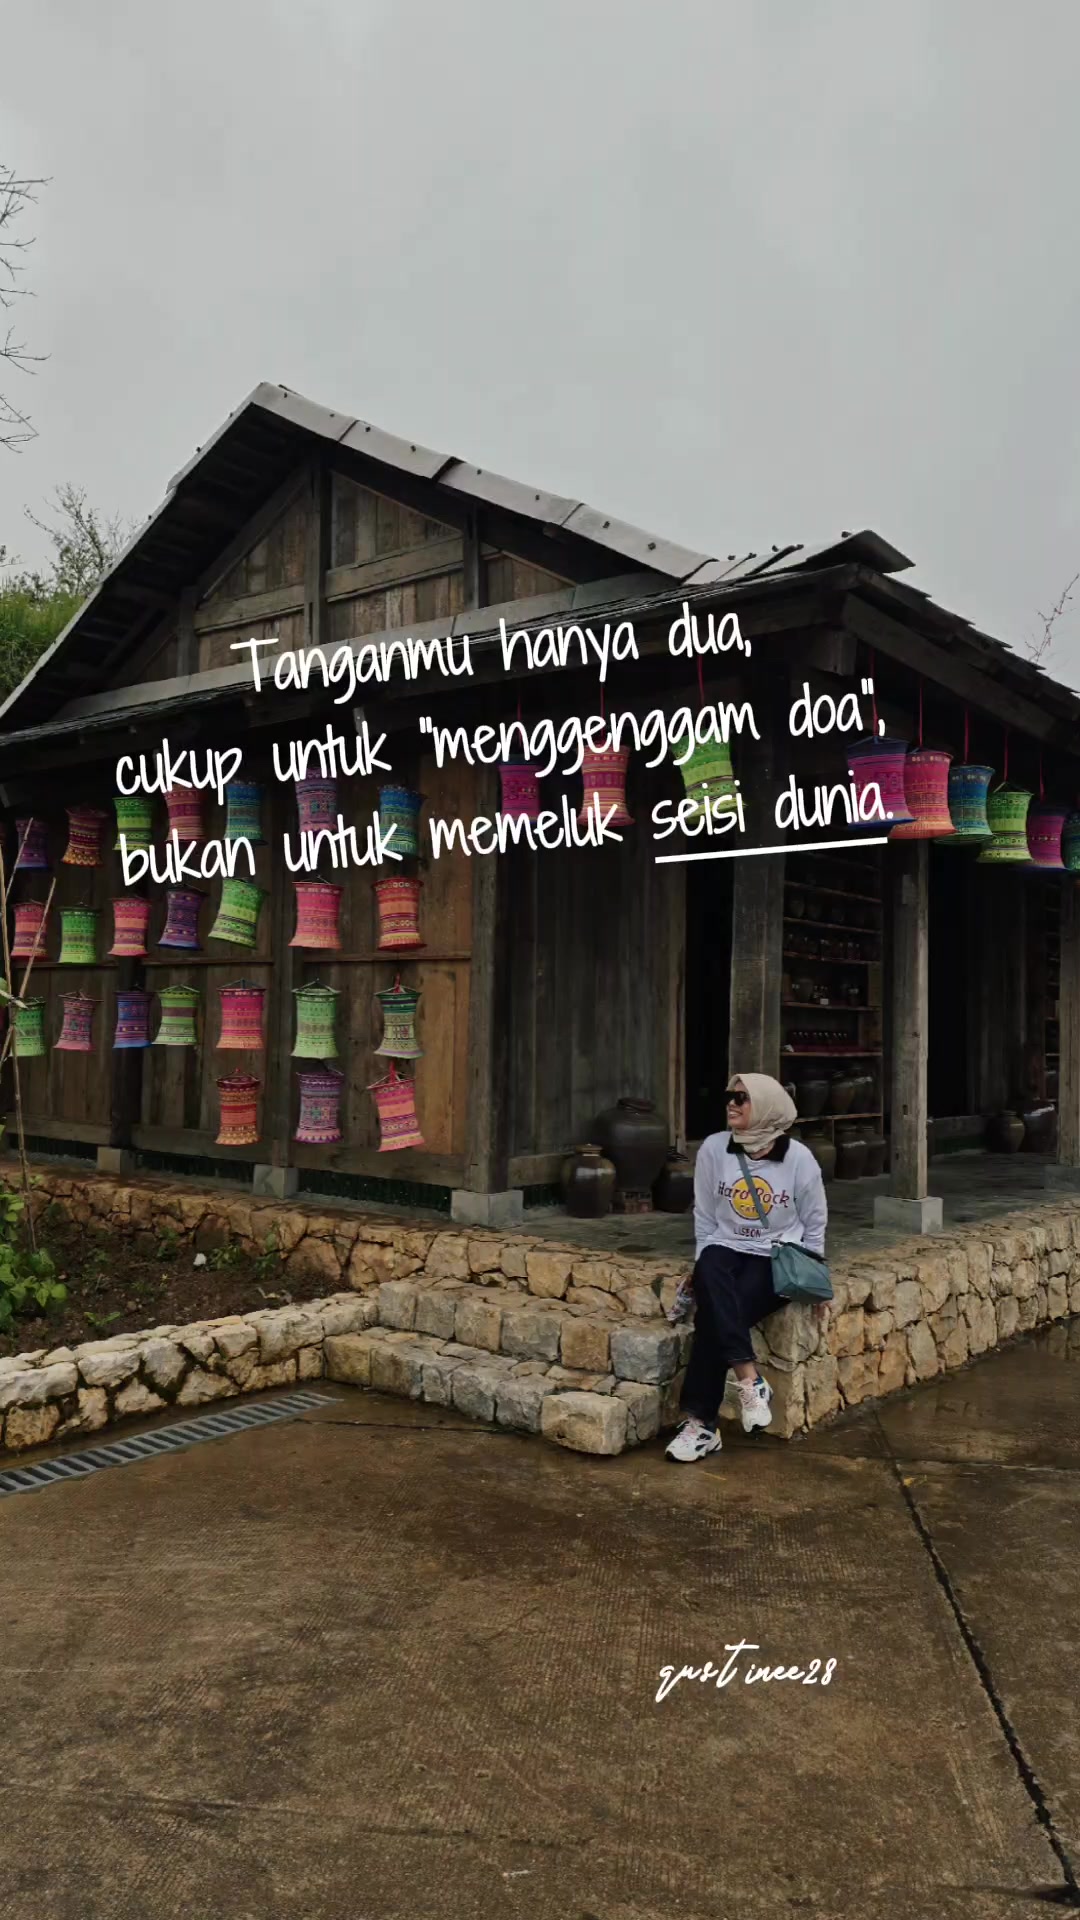 Tanganmu hanya dua,
cukup untuk "menggenggam doa",
bukan untuk memeluk seisi dunia.
Hard Rock
CAFE
LISBON
qustinee28